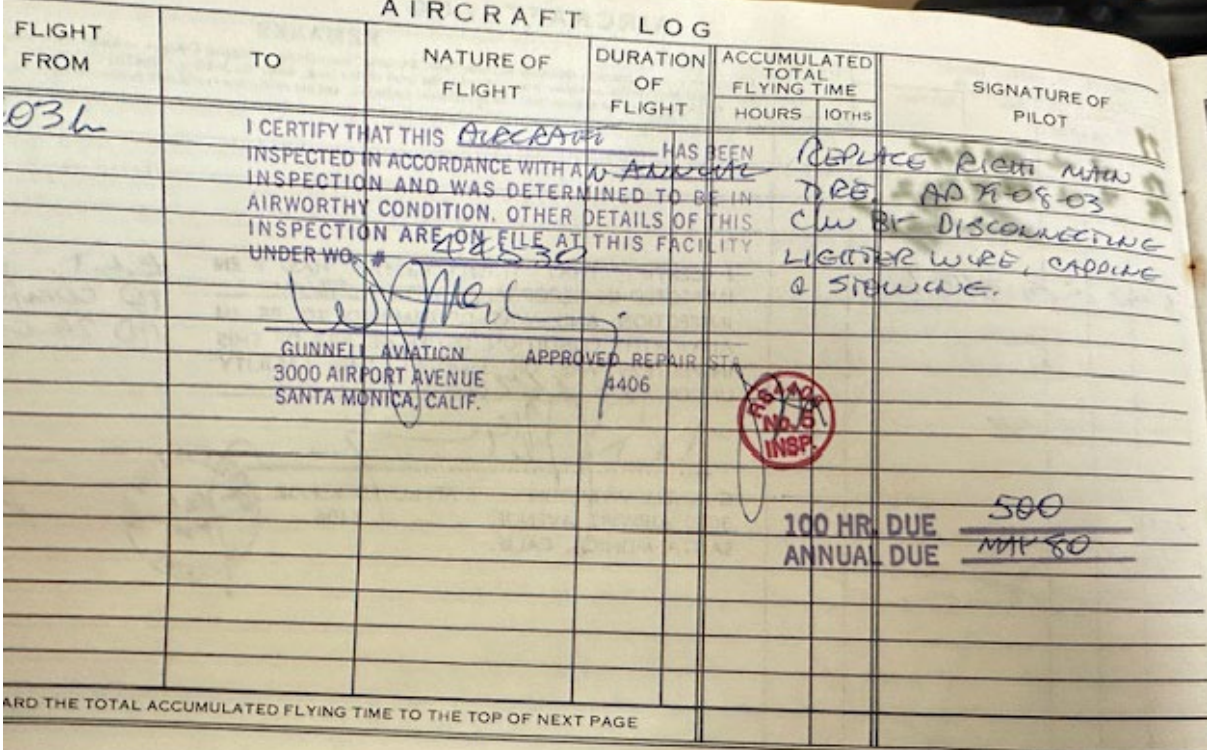 AIRCRAFT LOG
FLIGHT
FROM
TO
NATURE OF
FLIGHT
DURATION
OF
FLIGHT
ACCUMULATED
TOTAL
FLYING TIME
HOURS
10THS
SIGNATURE OF
PILOT
I CERTIFY THAT THIS AIRCRAFT HAS BEEN
INSPECTED IN ACCORDANCE WITH AN ANNUAL
INSPECTION AND WAS DETERMINED TO BE IN
AIRWORTHY CONDITION. OTHER DETAILS OF THIS
INSPECTION ARE ON FILE AT THIS FACILITY
UNDER WO. # 44530
GUNNELL AVIATION APPROVED REPAIR STA
3000 AIRPORT AVENUE 4406
SANTA MONICA, CALIF.
REPLACE RIGHT MAIN
TIRE. AD 79-08-03
C/W BY DISCONNECTING
LIGHTER WIRE, CAPPING
& STOWING.
RS4406
No. 5
INSP.
100 HR. DUE 500
ANNUAL DUE MAY 80
ARD THE TOTAL ACCUMULATED FLYING TIME TO THE TOP OF NEXT PAGE